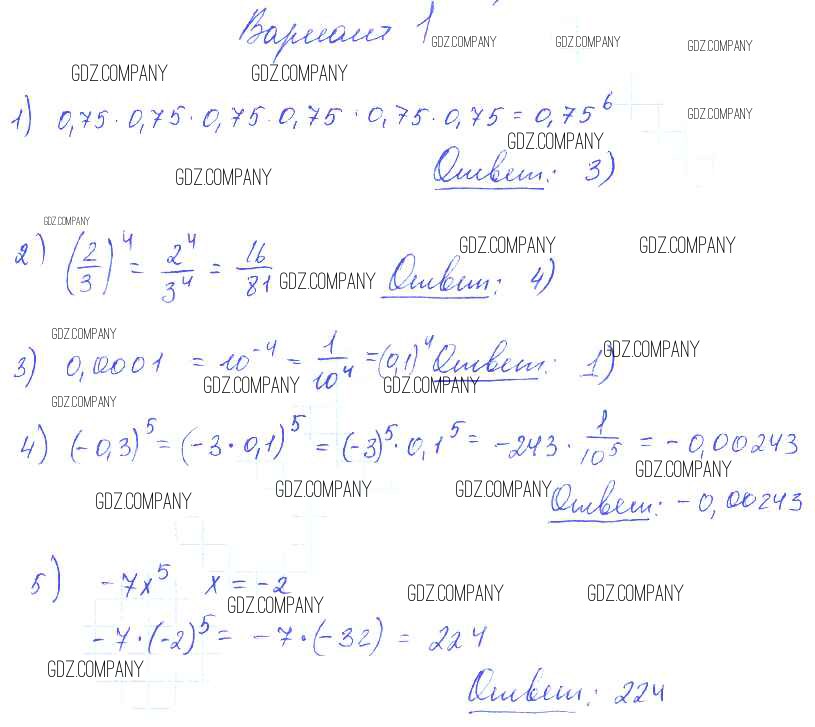 Вариант 1
GDZ.COMPANY GDZ.COMPANY GDZ.COMPANY
GDZ.COMPANY GDZ.COMPANY
1) 0,75 · 0,75 · 0,75 · 0,75 · 0,75 · 0,75 = 0,75⁶
GDZ.COMPANY
GDZ.COMPANY
GDZ.COMPANY Ответ: 3)
GDZ.COMPANY
GDZ.COMPANY GDZ.COMPANY
2) (2/3)⁴ = 2⁴/3⁴ = 16/81 GDZ.COMPANY Ответ: 4)
GDZ.COMPANY GDZ.COMPANY
3) 0,0001 = 10⁻⁴ = 1/10⁴ = (0,1)⁴ Ответ: 1)
GDZ.COMPANY GDZ.COMPANY
GDZ.COMPANY
4) (-0,3)⁵ = (-3 · 0,1)⁵ = (-3)⁵ · 0,1⁵ = -243 · 1/10⁵ = -0,00243
GDZ.COMPANY
GDZ.COMPANY GDZ.COMPANY GDZ.COMPANY
Ответ: -0,00243
5) -7x⁵ x = -2
GDZ.COMPANY GDZ.COMPANY GDZ.COMPANY
-7 · (-2)⁵ = -7 · (-32) = 224
GDZ.COMPANY
Ответ: 224